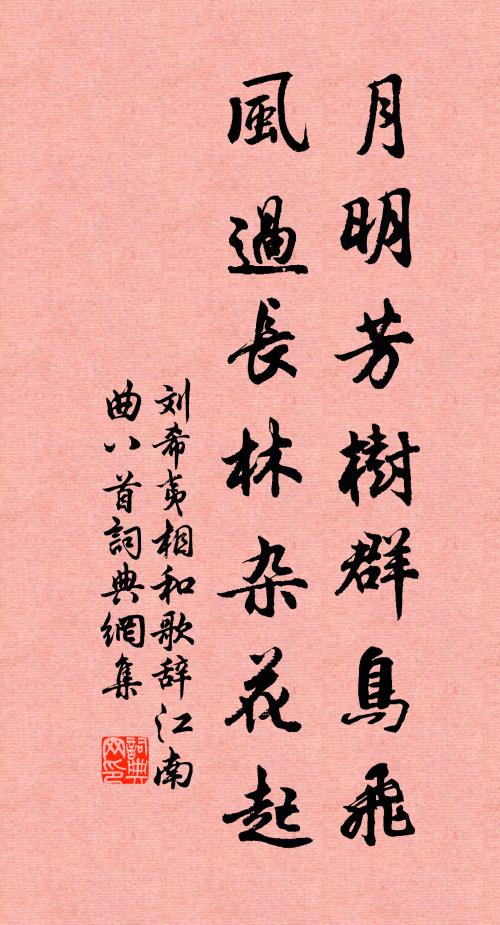 月明芳樹群鳥飛
風過長林杂花起
刘希夷相和歌辞江南
曲八首詞典網集
詞典
网印